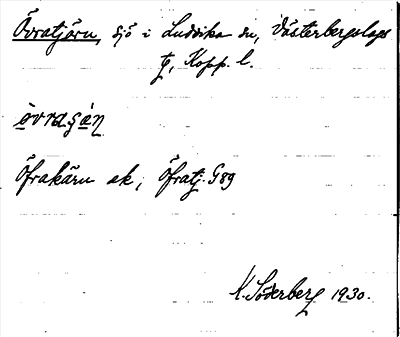 Övratjärn, sjö i Ludvika sn, Västerbergslags
tg, Kopp. l.
övraʂán
Öfrakärn ek; Öfratj. G89
K. Söderberg 1930.